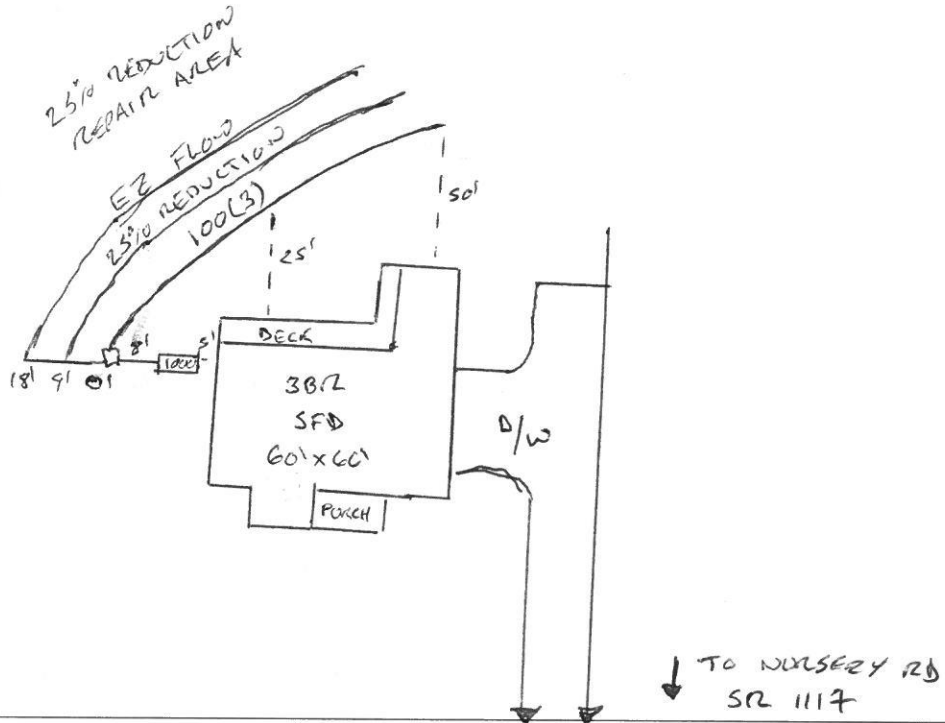 25% REDUCTION
REPAIR AREA
EZ FLOW
25% REDUCTION
100(3)
50'
25'
DECK
8'
5'
1000
18'
9'
0'
3BR
SFD
60' x 60'
D/W
PORCH
TO NURSERY RD
SR 1117